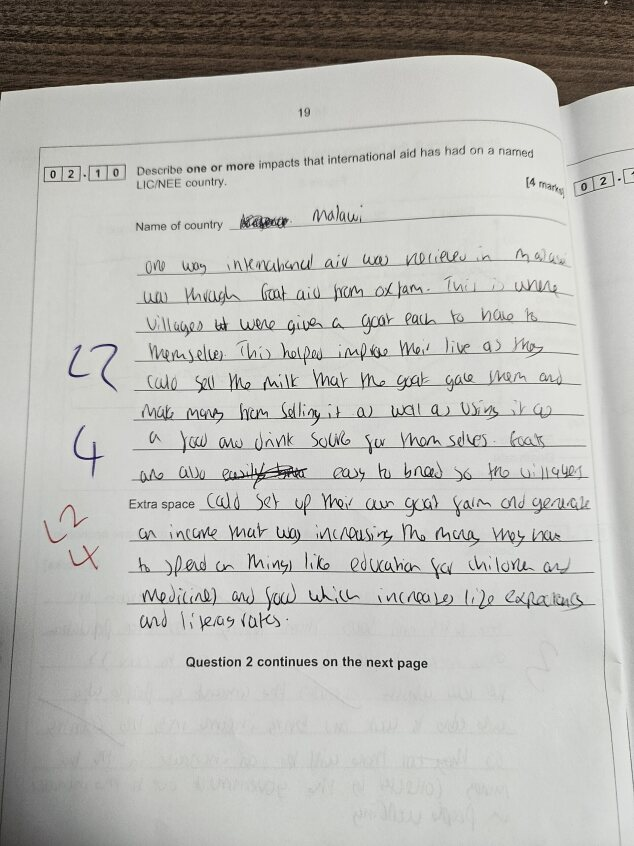 19
02.10 Describe one or more impacts that international aid has had on a named
LIC/NEE country.
[4 marks]
02.1
Name of country Malawi
one way international aid was recieved in Malawi
was through Goat aid from oxfam. This is where
villages were given a goat each to have to
themselves. This helped improve their live as they
could sell the milk that the goat gave them and
L2
make money from selling it as well as using it as
a food and drink source for themselves. Goats
4
are also easy to breed so the villages
Extra space could set up their own goat farm and generate
L2
an income that way increasing the money they have
4
to spend on things like education for children and
medicines and food which increases life expectancy
and literacy rates.
Question 2 continues on the next page